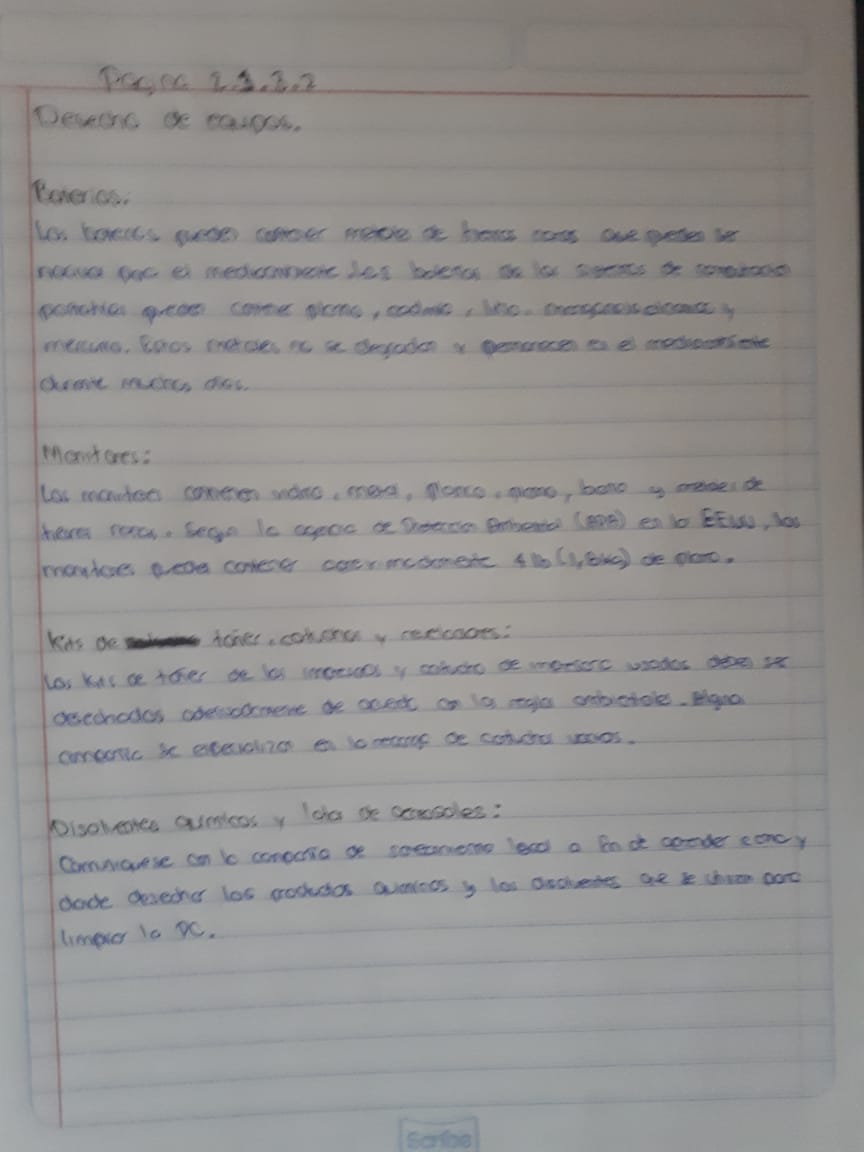 Pagina 2.1.3.2
Desecho de equipos.
Baterias:
Las baterias pueden contener metales de tierras raras que pueden ser
nocivos para el medioambiente las baterias de los sistemas de
portatiles pueden contener plomo, cadmio, litio, y
mercurio. Estos metales no se degradan y permanecen en el medioambiente
durante muchos dias.
Monitores:
Los monitores contienen vidrio, metal, plomo, bario y metales de
tierra raras. Segun la de Proteccion Ambiental (EPA) en lo EEUU, los
monitores pueden contener aproximadamente 4 lb (1,8kg) de plomo.
Kits de toner, cartuchos y
Los kits de toner de las impresoras y cartucho de impresora usados deben ser
desechados adecuadamente de con la regla ambientales.
se especializa en lo de cartucho vacios.
Disolventes quimicos y lata de aerosoles:
Comuniquese con la de saneamiento local a fin de aprender como y
donde desechar los productos quimicos y los disolventes que se utilizan para
limpiar la PC.
Scribe